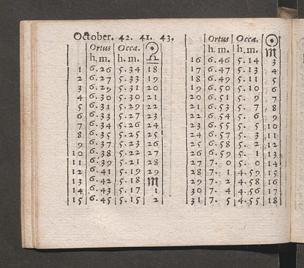 October. 42. 41. 43.
Ortus Occa. ☉
h. m. h. m. ♎
1 6.26 5.34 18
2 6.27 5.33 19
3 6.29 5.31 20
4 6.30 5.30 21
5 6.31 5.29 22
6 6.33 5.27 23
7 6.34 5.26 24
8 6.35 5.25 25
9 6.37 5.23 26
10 6.38 5.22 27
11 6.39 5.21 28
12 6.41 5.19 29
13 6.42 5.18 ♏
14 6.43 5.17 1
15 6.45 5.15 2
Ortus Occa. ☉
h. m. h. m. ♏
16 6.46 5.14 3
17 6.47 5.13 4
18 6.49 5.11 5
19 6.50 5.10 6
20 6.51 5. 9 7
21 6.53 5. 7 8
22 6.54 5. 6 9
23 6.55 5. 5 10
24 6.57 5. 3 11
25 6.58 5. 2 12
26 6.59 5. 1 13
27 7. 0 5. 0 14
28 7. 1 4.59 15
29 7. 2 4.58 16
30 7. 4 4.56 17
31 7. 5 4.55 18